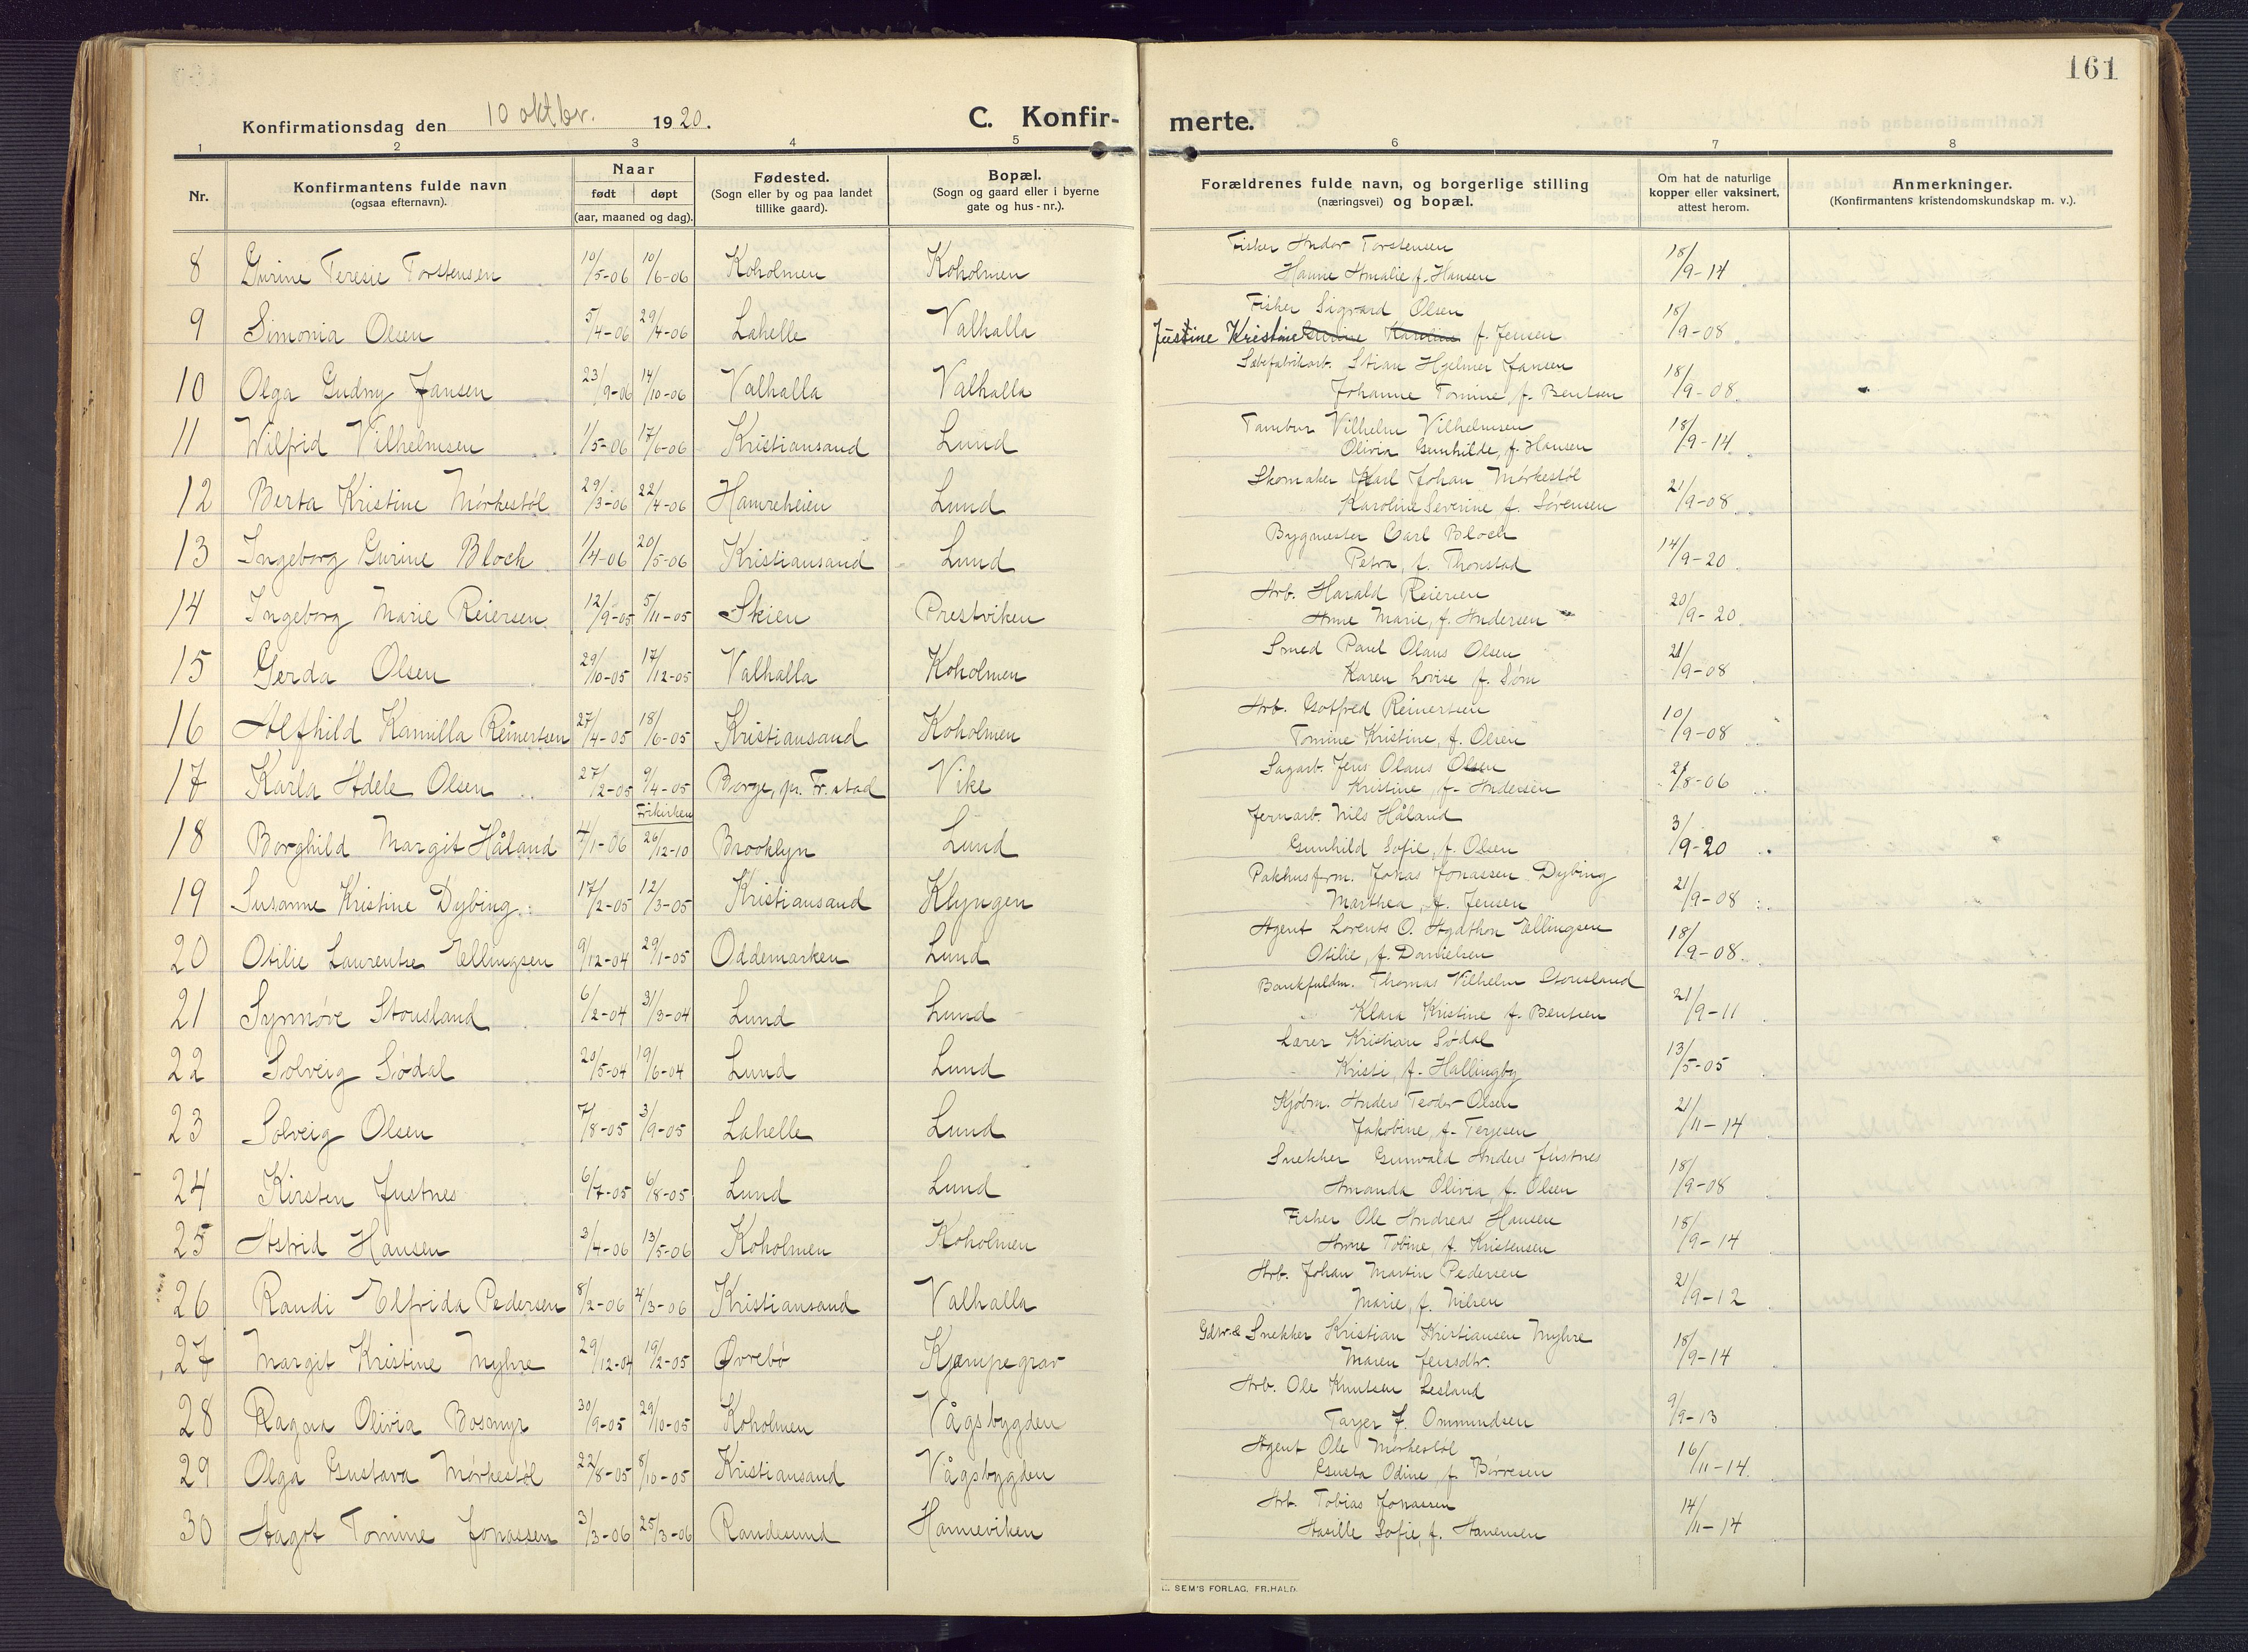 161
Konfirmationsdag den 10 oktbr. 1920.
C. Konfir-
merte.
1 2 3 4 5 6 7 8
Nr.
Konfirmantens fulde navn
(ogsaa efternavn).
Naar
født døpt
(aar, maaned og dag).
Fødested.
(Sogn eller by og paa landet
tillike gaard).
Bopæl.
(Sogn og gaard eller i byerne
gate og hus-nr.).
Forældrenes fulde navn, og borgerlige stilling
(næringsvei) og bopæl.
Om hat de naturlige
kopper eller vaksinert,
attest herom.
Anmerkninger.
(Konfirmantens kristendomskundskap m. v.).
Fisker Andor Torstensen
8 Gurine Teresie Torstensen 10/5-06 10/6-06 Koholmen Koholmen Hanne Amalie f. Hansen 18/9-14
Fisker Sigvard Olsen
9 Simonia Olsen 5/4-06 29/4-06 Lahelle Valhalla Justine Kristine Karoline f. Jensen 18/9-08
Sæbefabrikarb. Stian Hjelmer Jansen
10 Olga Gudny Jansen 23/9-06 14/10-06 Valhalla Valhalla Johanne Tomine, f. Bentsen 18/9-08
Tambur Vilhelm Vilhelmsen
11 Wilfrid Vilhelmsen 1/5-06 17/6-06 Kristiansand Lund Olivia Gunhilde, f. Hansen 18/9-14
Skomaker Karl Johan Mørkestøl
12 Berta Kristine Mørkestøl 29/3-06 22/4-06 Hamreheien Lund Karoline Severine f. Sørensen 21/9-08
Bygmester Carl Bloch
13 Ingeborg Gurine Bloch 1/4-06 20/5-06 Kristiansand Lund Petra, f. Thonstad 14/9-20
Arb. Harald Reiersen
14 Ingeborg Marie Reiersen 12/9-05 5/11-05 Skien Prestviken Anne Marie, f. Andersen 20/9-20
Smed Paul Olaus Olsen
15 Gerda Olsen 29/10-05 17/12-05 Valhalla Koholmen Karen Lovise f. Søm 21/9-08
Arb. Gotfred Reinertsen
16 Alfhild Kamilla Reinertsen 27/4-05 18/6-05 Kristiansand Koholmen Tomine Kristine, f. Olsen 10/9-08
Sagarb. Jens Olaus Olsen
17 Karla Adele Olsen 27/2-05 9/4-05 Borge, pr. Fr.stad Vike Kristine, f. Andersen 21/8-06
Frikirken
Jernarb. Nils Håland
18 Borghild Margit Håland 4/1-06 26/12-10 Brooklyn Lund Gunhild Sofie, f. Olsen 3/9-20
Pakhusfrm. Jonas Jonassen Dybing
19 Susanne Kristine Dybing 17/2-05 12/3-05 Kristiansand Klyngen Marthea, f. Jensen 21/9-08
Agent Lorents O. Agathon Ellingsen
20 Otilie Laurentse Ellingsen 9/12-04 29/1-05 Oddemarken Lund Otilie, f. Danielsen 18/9-08
Bankfuldm. Thomas Vilhelm Stousland
21 Synnøve Stousland 6/2-04 31/3-04 Lund Lund Klara Kristine f. Bentsen 21/9-11
Lærer Kristian Sødal
22 Solveig Sødal 20/5-04 19/6-04 Lund Lund Kristi, f. Hallingby 13/5-05
Kjøbm. Anders Teodor Olsen
23 Solveig Olsen 7/8-05 3/9-05 Lahelle Lund Jakobine, f. Terjesen 21/11-14
Snekker Gunvald Anders Justnes
24 Kirsten Justnes 6/7-05 6/8-05 Lund Lund Amanda Olivia, f. Olsen 18/9-08
Fisker Ole Andreas Hansen
25 Astrid Hansen 3/4-06 13/5-06 Koholmen Koholmen Anne Tobine, f. Kristensen 18/9-14
Arb. Johan Martin Pedersen
26 Randi Elfrida Pedersen 8/2-06 4/3-06 Kristiansand Valhalla Marie, f. Nilsen 21/9-12
Gdbr. & Snekker Kristian Kristiansen Myhre
27 Margit Kristine Myhre 29/12-04 19/2-05 Øvrebø Kjempegrav Maren Jensdtr. 18/9-14
Arb. Ole Knutsen Lesland
28 Ragna Olivia Bosmyr 30/9-05 29/10-05 Koholmen Vågsbygden Tarjer f. Ommundsen 9/9-13
Agent Ole Mørkestøl
29 Olga Gustava Mørkestøl 22/8-05 8/10-05 Kristiansand Vågsbygden Gusta Odine, f. Børresen 16/11-14
Arb. Tobias Jonassen
30 Aagot Tomine Jonassen 3/3-06 25/3-06 Randesund Hanneviken Sofie, f. 14/11-14
SEM'S FORLAG, FR.HALD.